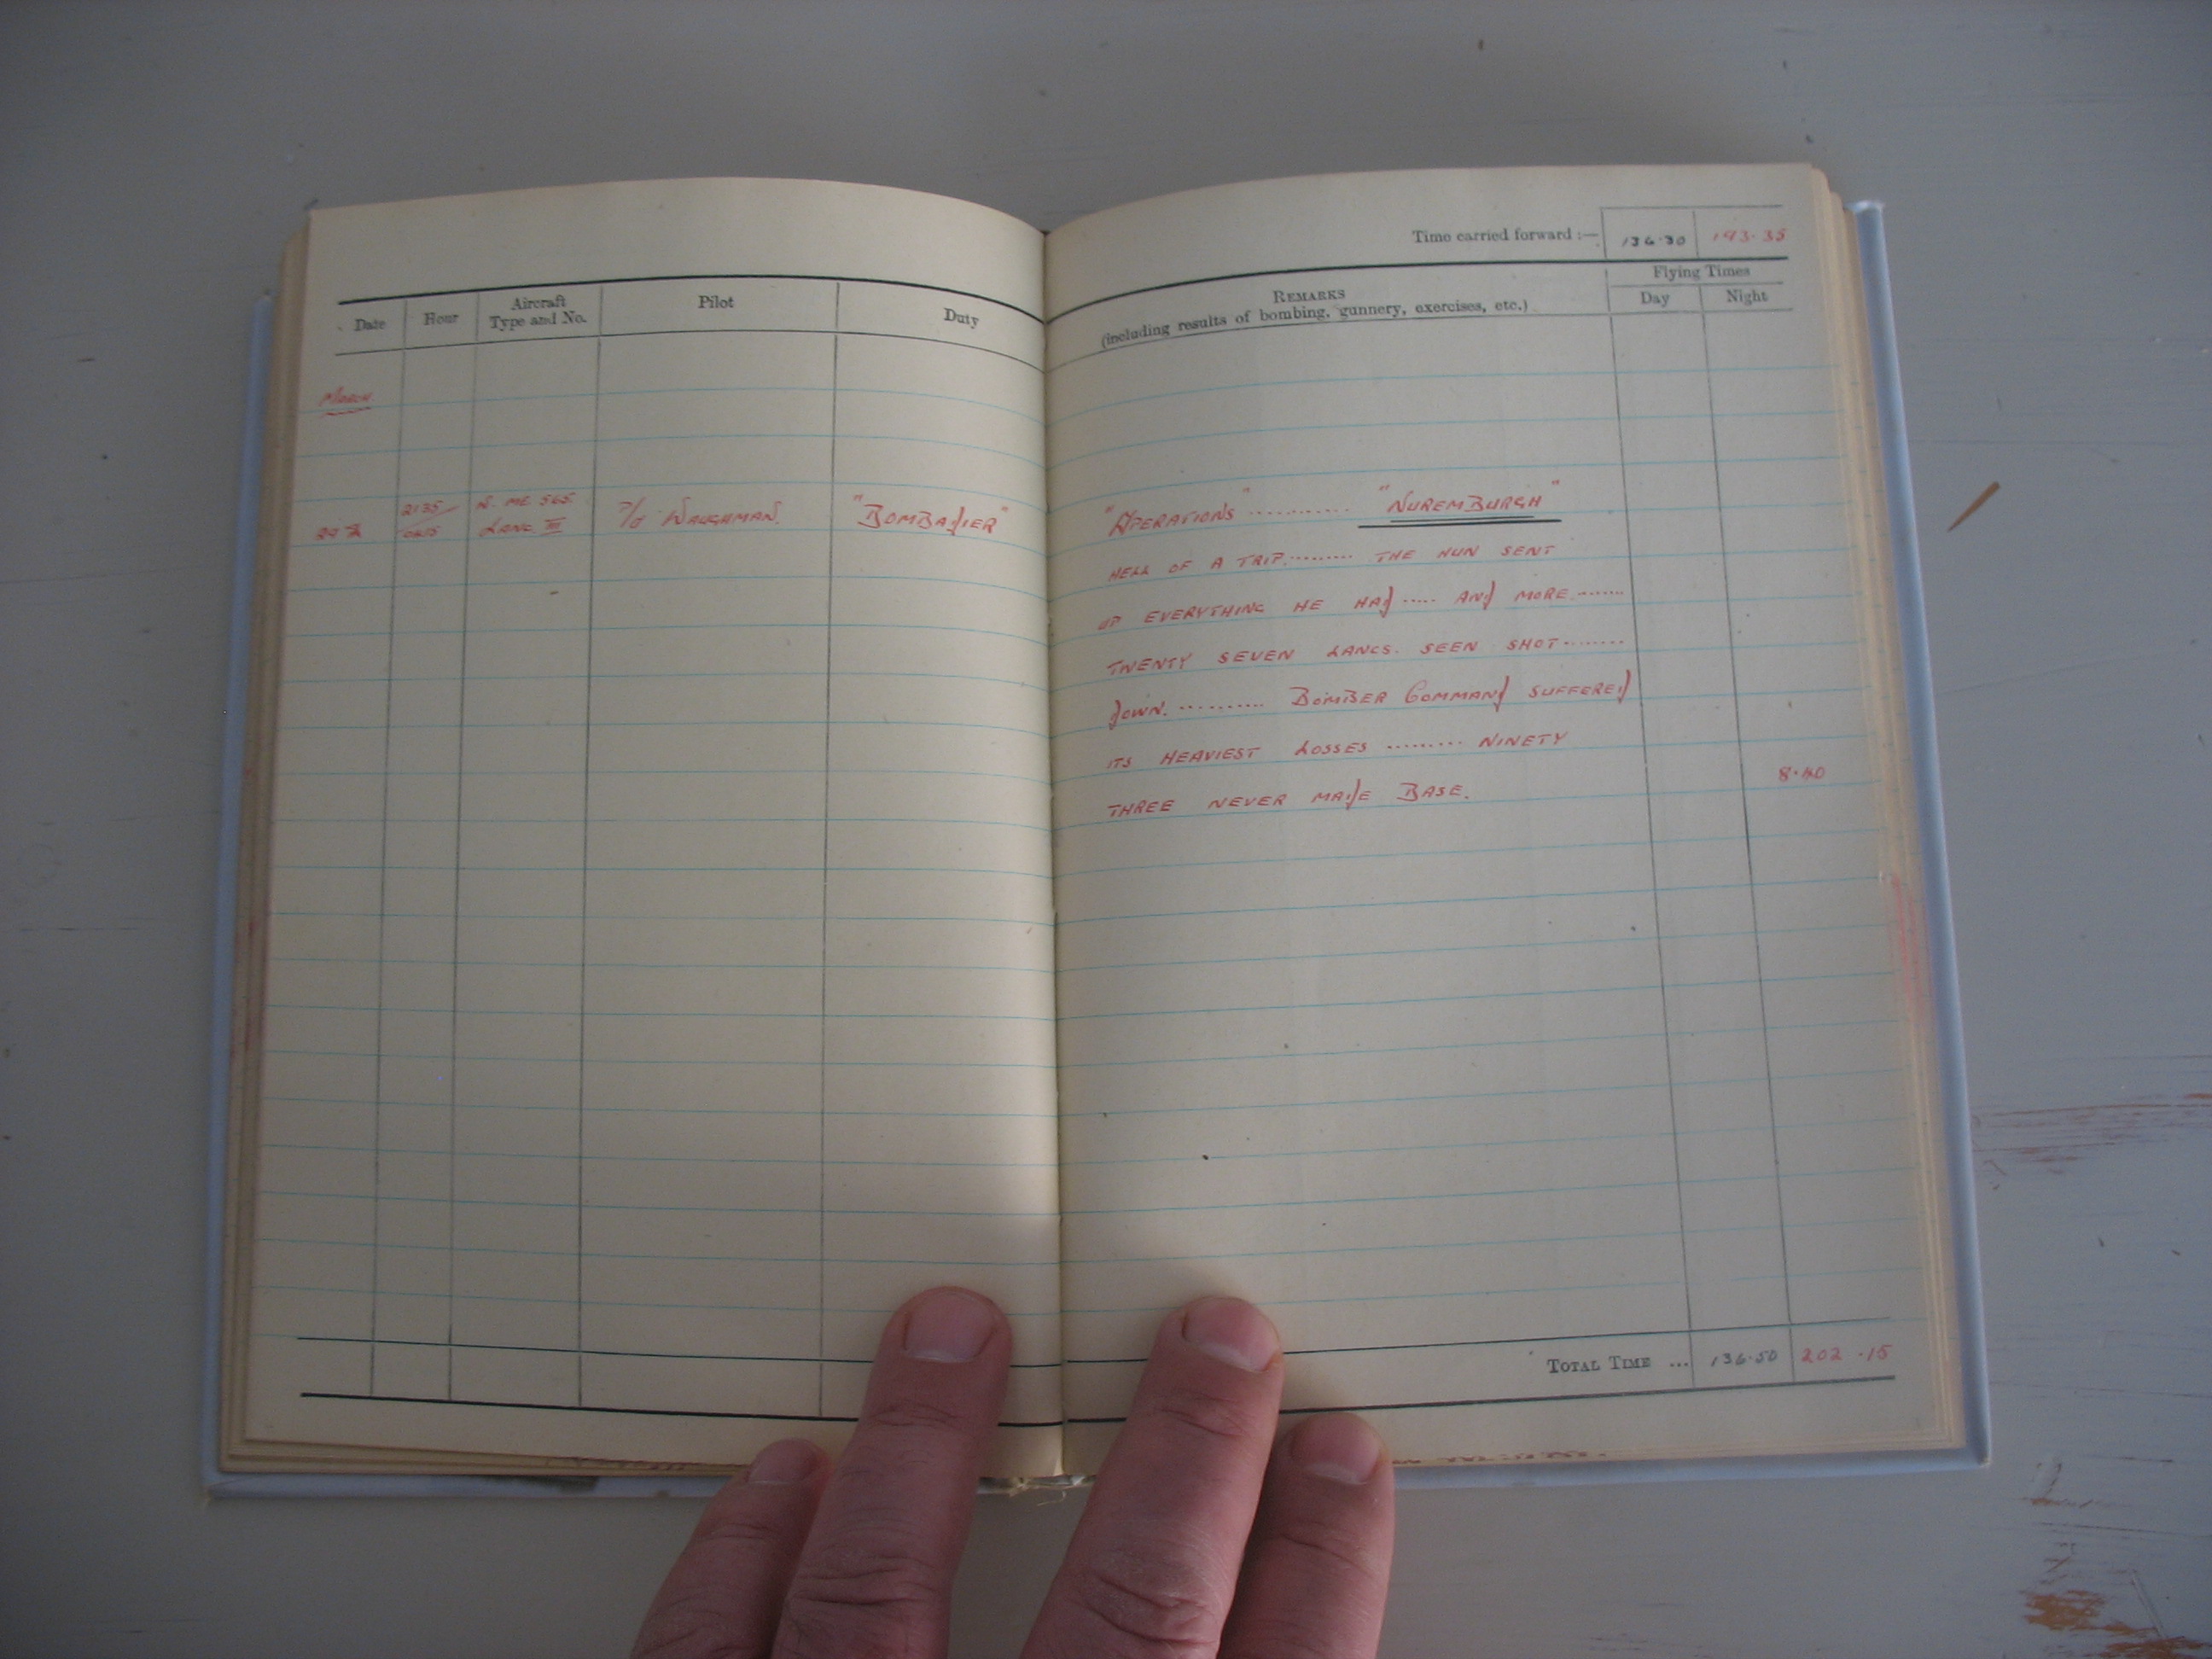 Time carried forward :— 136·30 193·35
Date Hour Aircraft Type and No. Pilot Duty
REMARKS
(including results of bombing, gunnery, exercises, etc.)
Flying Times
Day Night
MARCH
2135 N. ME 565
LANC. III P/O WAUGHMAN. "BOMBADIER"
"OPERATIONS" ............ "NUREMBURGH"
HELL OF A TRIP.......... THE HUN SENT
UP EVERYTHING HE HAD ..... AND MORE ........
TWENTY SEVEN LANCS. SEEN SHOT .........
DOWN. ........... BOMBER COMMAND SUFFERED
ITS HEAVIEST LOSSES ......... NINETY
THREE NEVER MADE BASE.
8·40
TOTAL TIME ... 136·50 202·15